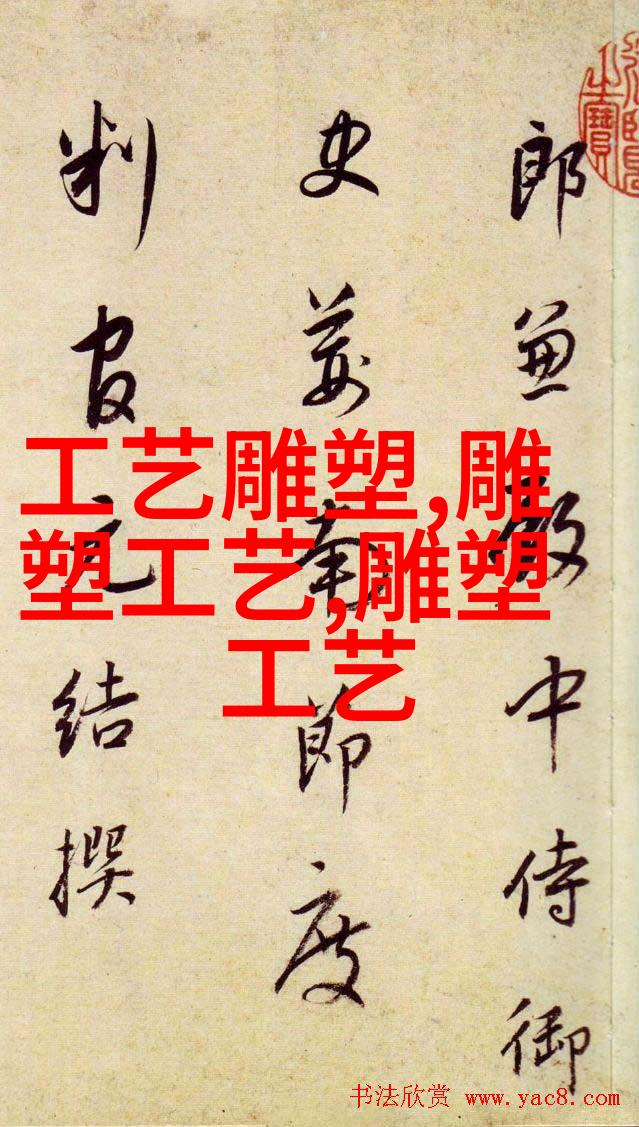 郎兼殿中侍御
史荊南節度
判官元結撰
工艺雕塑,雕
塑工艺,雕塑
工艺
书法欣赏 www.yac8.com